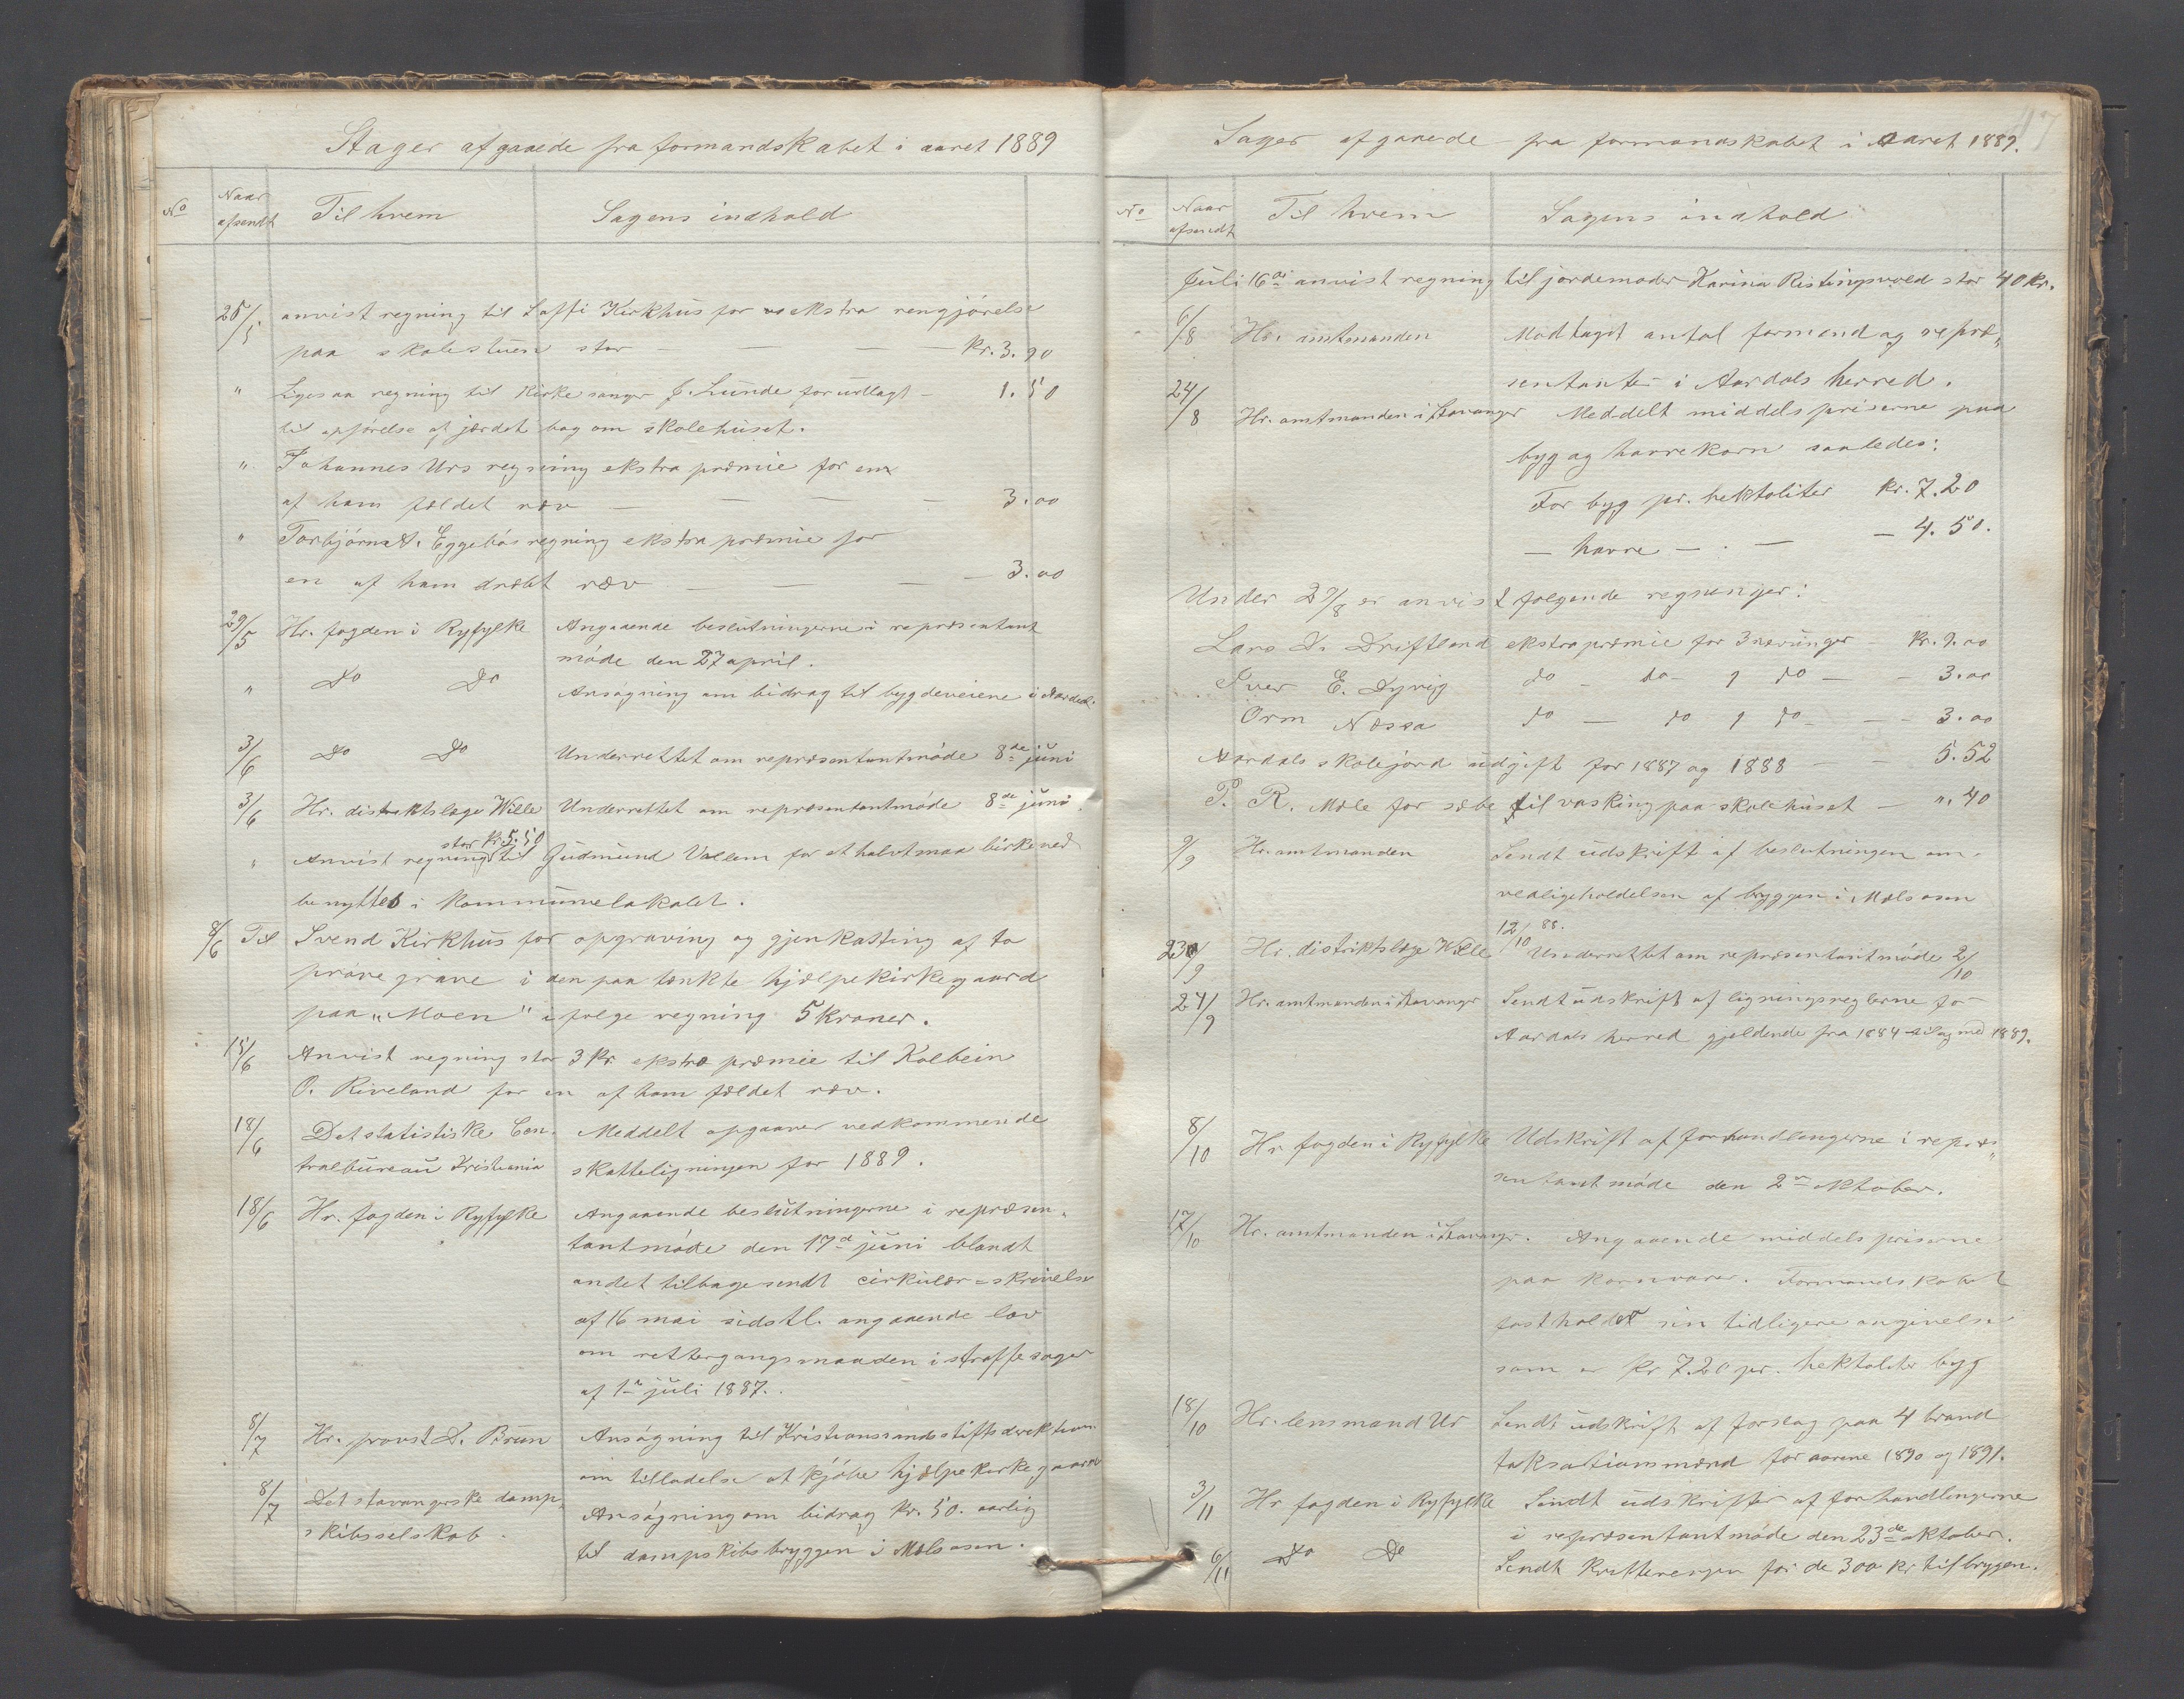 Sager afgaaede fra formandskabet i aaret 1889
No
Naar afsendt
Til hvem
Sagens indhold
25/5 anvist regning til Soffi Kirkhus for ekstra rengjórelse
paa skolestuen stor — — — Kr. 3.90
" Ligesaa regning til Kirkesanger J. Lunde for udlagt — 1.50
til opførelse af jerdet bag om skolehuset.
" Johannes Urs regning ekstra præmie for en
af ham fældet ræv — — — — 3.00
" Torbjörn A. Eggebös regning ekstra præmie for
en af ham dræbt ræv — — — — 3.00
29/5 Hr. fogden i Ryfylke Angaaende beslutningerne i repræsentant
móde den 27 april.
" Do Do Ansøgning om bidrag til bygdeveiene i Aardal.
3/6 Do Do Underrettet om repræsentantmóde 8de juni
3/6 Hr. distriktslæge Wille Underrettet om repræsentantmóde 8de juni.
stor Kr. 5.50
" Anvist regning til Gudmund Valem for et halvt maa birkeved
benyttes i Kommunelokalet.
8/6 Til Svend Kirkhus for opgraving og gjenkasting af to
próvegrave i den paatænkte hjælpekirkegaard
paa „Moen" ifølge regning 5 kroner.
15/6 Anvist regning stor 3 Kr ekstra præmie til Kolbein
O. Riveland for en af ham fældet ræv.
18/6 Det statistiske Cen- Meddelt opgaver vedkommende
tralbureau Kristiania skatteligningen for 1889.
18/6 Hr. fogden i Ryfylke Angaaende beslutningerne i repræsen-
tantmóde den 17de juni blandt
andet tilbagesendt cirkulær=skrivelse
af 16 mai sidstl. angaaende lov
om rettergangsmaaden i straffesager
af 1ste juli 1887.
8/7 Hr. provst D. Brun Ansögning til Kristianssands stiftsdirektion
om tilladelse at kjöbe hjælpekirkegaard
8/7 Det stavangerske damp- Ansøgning om bidrag Kr. 50. aarlig
skibsselskab. til dampskibsbryggen i Mælsosen.
Sager afgaaede fra formandskabet i Aaret 1889.
No
Naar afsendt
Til hvem
Sagens indhold
Juli 16de anvist regning til jordemoder Karina Ristingsvold stor 40 Kr.
6/8 Hr. amtmanden Modtaget antal formænd og repræ„
sentanter i Aardals herred.
24/8 Hr. amtmanden i Stavanger Meddelt middelspriserne paa
byg og havrekorn saaledes:
For byg pr. hektoliter Kr. 7.20
— havre — . — — 4.50.
Under 27/8 er anvist følgende regninger:
Lars L. Driftland ekstrapræmie for 3 ræv unger — Kr. 9.00
Iver E. Dyrig do — do — 1 do — — 3.00
Orm Nessa do — do 1 do — — 3.00
Aardals skolejord udgift for 1887 og 1888 — — 5.52
P. R. Mæle for sæbe til vasking paa skolehuset — „. 40
9/9 Hr. amtmanden Sendt udskrift af beslutningen om
vedligeholdelsen af bryggen i Mælsosen
12/10 88.
23/9 Hr. distriktslæge Wille Underrettet om repræsentantmóde 2/10
24/9 Hr. amtmanden i Stavanger Sendt udskrift af ligningsreglerne for
Aardals herred gjeldende fra 1884 til og med 1889.
8/10 Hr fogden i Ryfylke Udskrift af forhandlingerne i repræ„
sentantmóde den 2den oktober.
17/10 Hr. amtmanden i Stavanger. Angaaende middelspriserne
paa kornvarer. Formandskabet
fastholdet sin tidligere angivelse
som er Kr 7.20 pr. hektoliter byg
18/10 Hr. lensmand Ur Sendt udskrift af forslag paa 4 brand
taksationsmænd for aarene 1890 og 1891.
3/11 Hr fogden i Ryfylke Sendt udskrifter af forhandlingerne
i repræsentantmóde den 23de oktober.
6/11 Do Do Sendt Kvitteringen for de 300 Kr til bryggen.